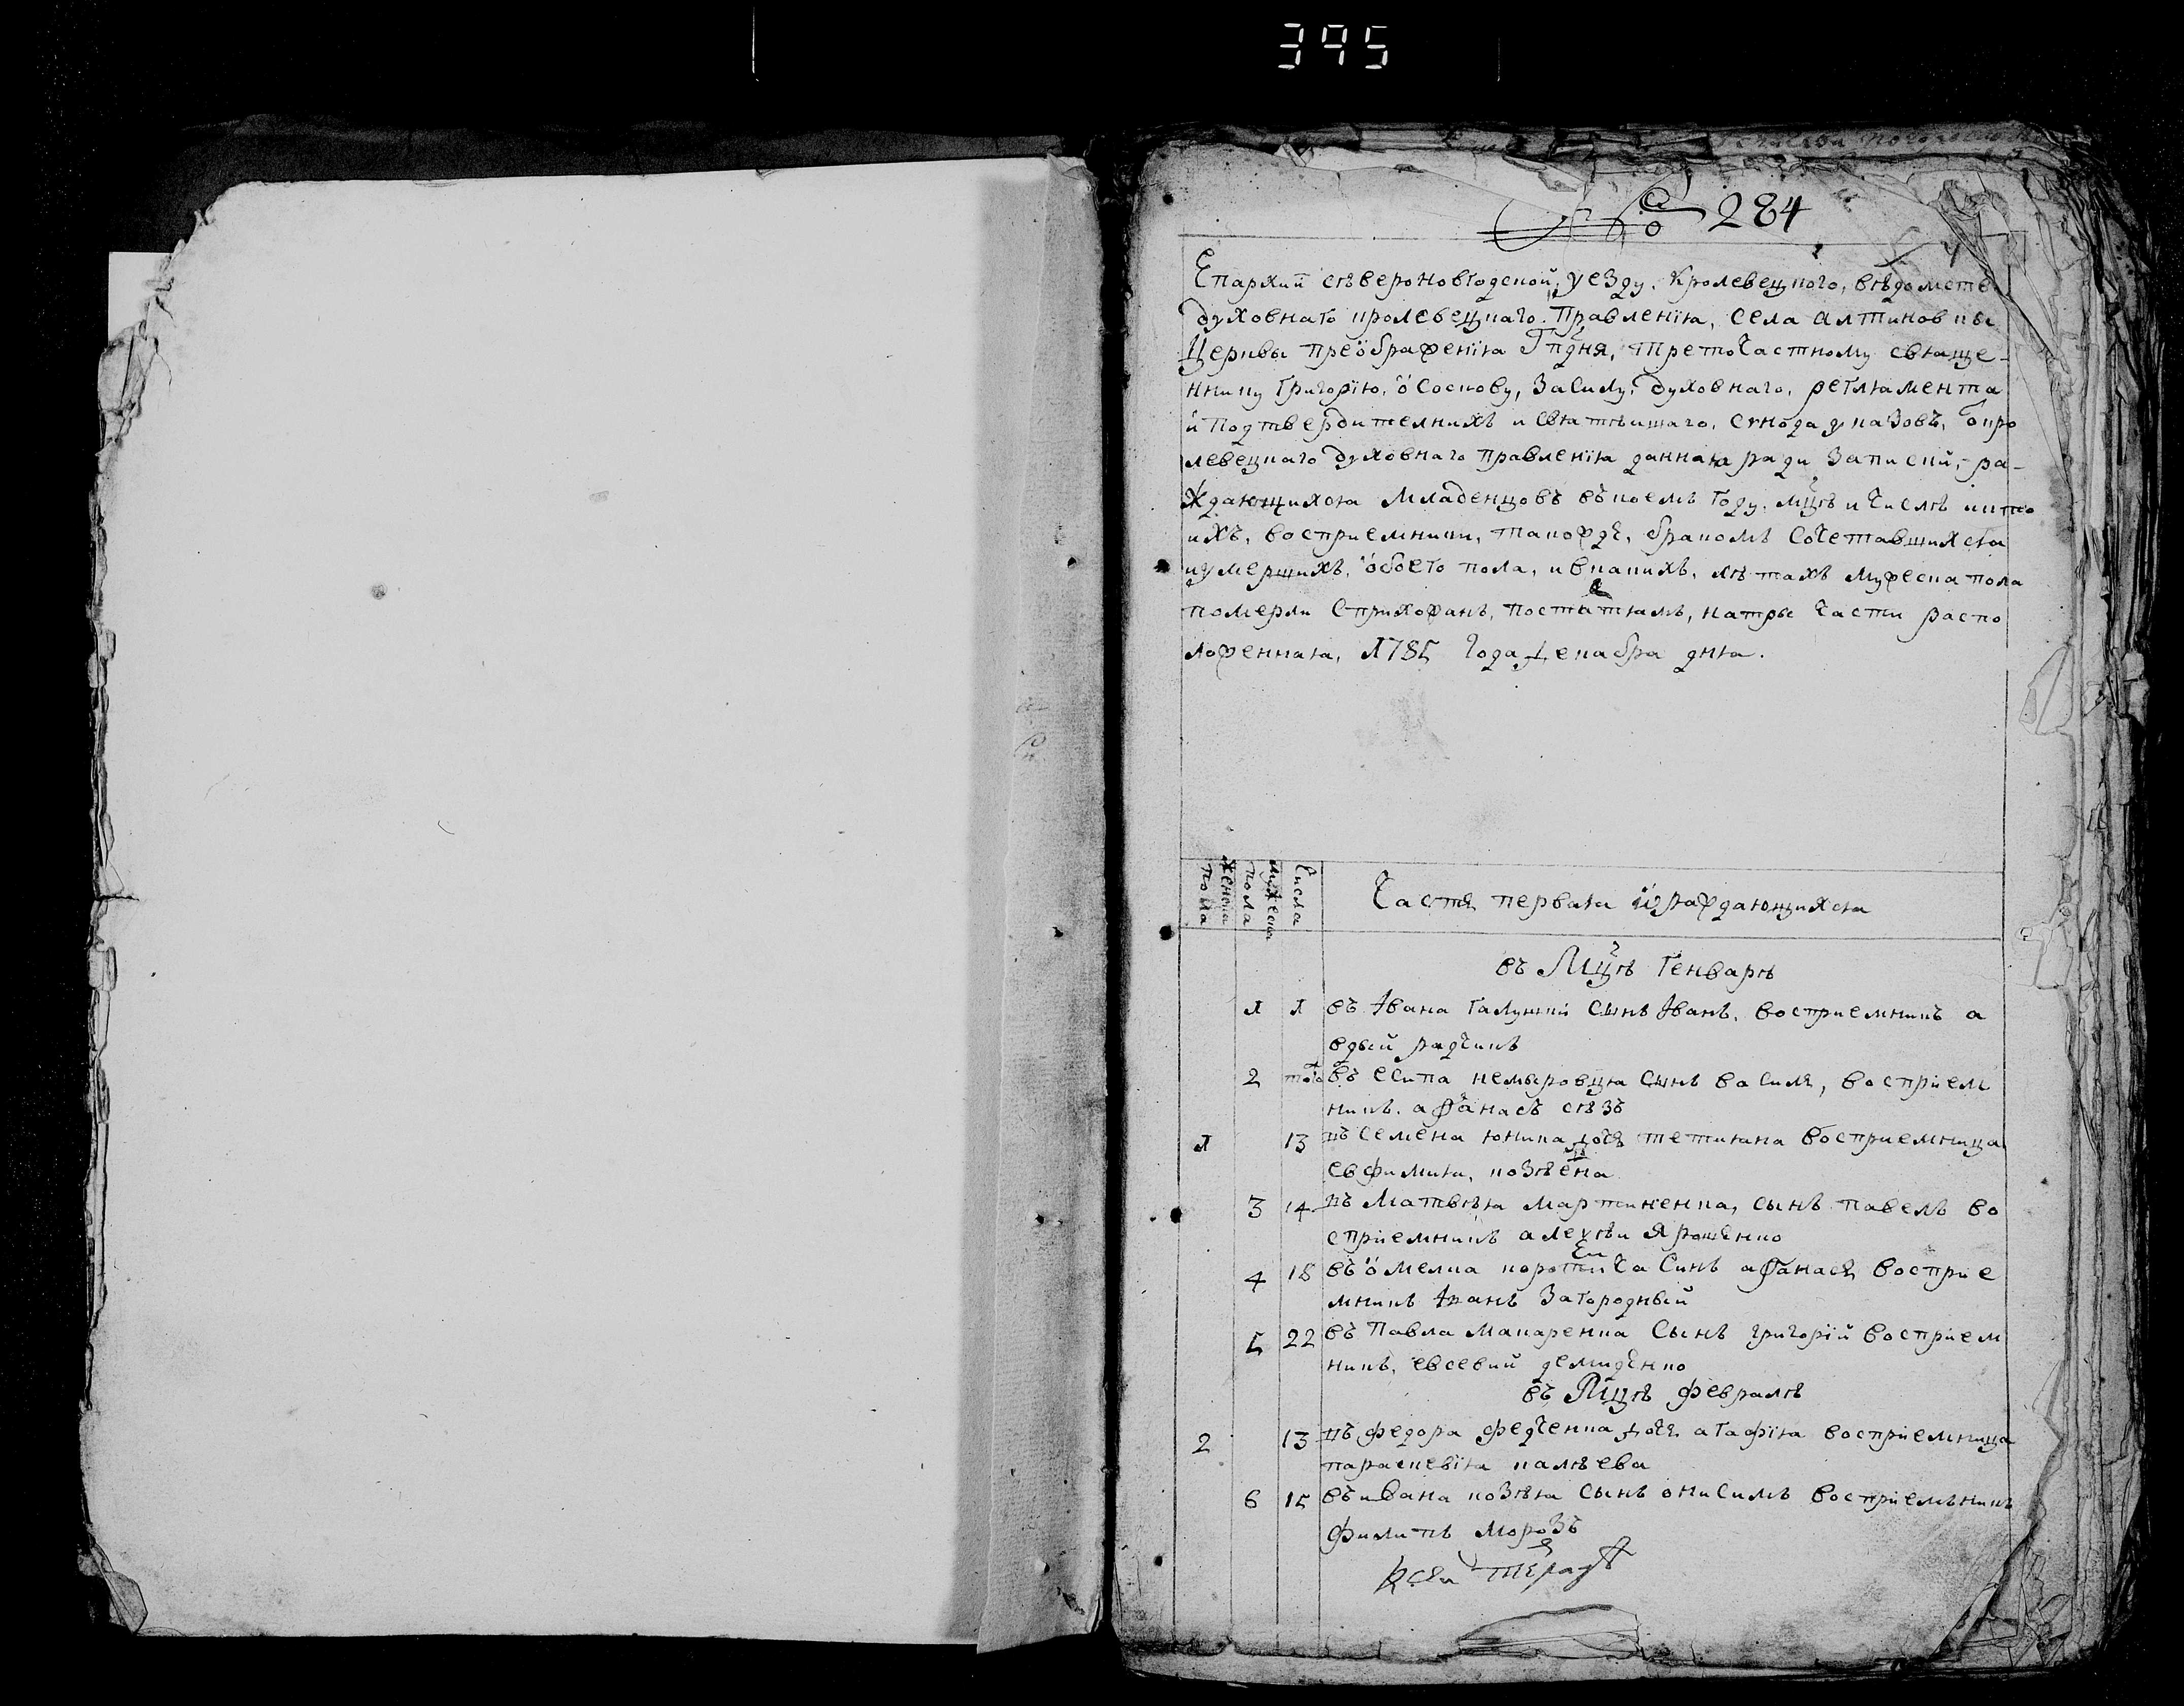 395
284
Епархий сѣвероновгодской, уезду, Кролевецкого, вѣдомств
духовнаго кролевецкаго Правленїя, села алтиновки
Церквы преображенїя Гпдня, треточастному свяще-
ннику Григорїю, Сосновy, Засилу, духовнаго, регламента
и подтвердителнихъ и святѣишаго, Сѵнода указовъ, ѿ кро
левецкаго духовнаго правленїя данная ради Записки, ра-
ждающихся Младенцовъ въ коемъ году, мцѣ и числѣ и кто
ихъ, восприемники, такожде, бракомъ Сочетавшихся
и умершихъ, обоего пола, и в какихъ, лѣтахъ мужеска пола
померли С прихожанъ, по статямъ, на тры части распо
ложенная, 1785 года декабра дня.
женска пола
мужеска пола
Числа
Часть первая ѿ раждающихся
въ Мцѣ Генварѣ
1 1 въ Ивана Галушки Сынъ Иванъ, восприемникъ а
вдый радчикъ
2 того въ есипа немыровца Сынъ василь, восприем
никъ афанасъ сѣзъ
1 13 въ семена юника дочь тетияна восприемница
евфимия, козѣена
3 14 въ Матвѣя мартиненка, сынъ павелъ во
сприемникъ алеѵѣи Ярошенко
4 18 въ омелка коротича Синъ афанась восприе
мникъ Иванъ Загородный
5 22 въ Павла макаренка Сынъ григорїй восприем
никъ, евсевий демидчнко
въ Мцѣ февралѣ
2 13 въ федора федченка дочь агафїя восприемница
параскевїя палѣева
6 15 въ ивана козѣя сынъ онисимъ восприемъникъ
филипъ морозъ